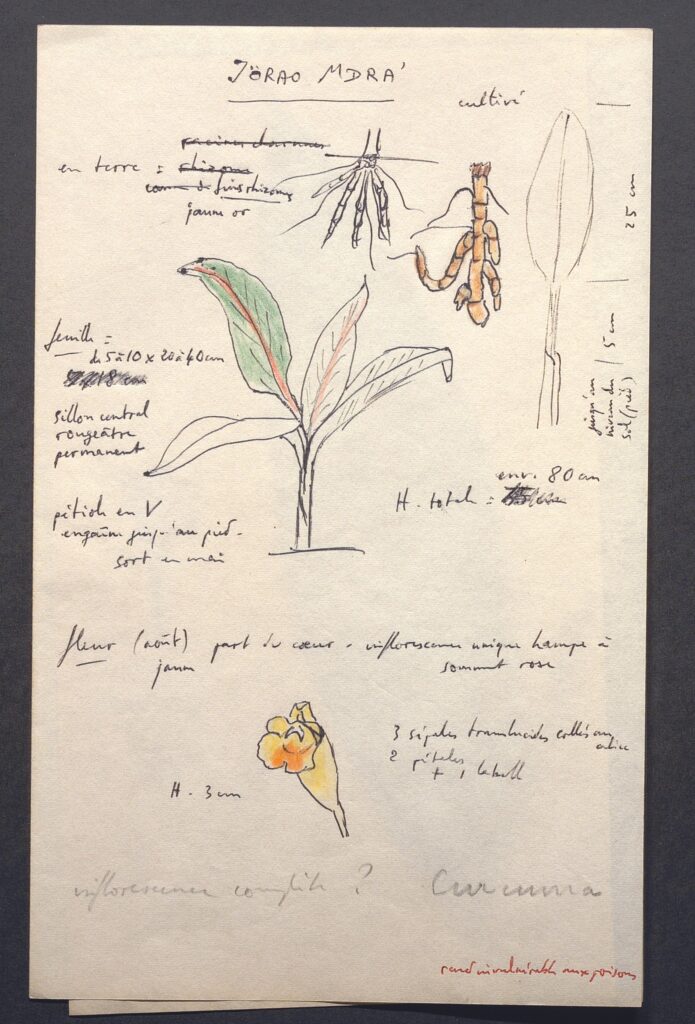 JÖRAO MDRÁ
cultivé
racines charnues
en terre = rhizome
fins rhizomes
jaune or
25 cm
5 cm
jusqu'au
niveau du
sol (pied)
feuille =
de 5 à 10 x 20 à 40 cm
18 cm
sillon central
rougeâtre
permanent
env. 80 cm
H. totale =
pétiole en V
engainé jusqu'au pied -
sort en mai
fleur (août) part du cœur - inflorescence unique hampe à
jaune sommet rose
3 sépales translucides collés au
calice
2 pétales
+ 1 labelle
H - 3 cm
inflorescence complète ? Curcuma
rend invulnérable aux poisons